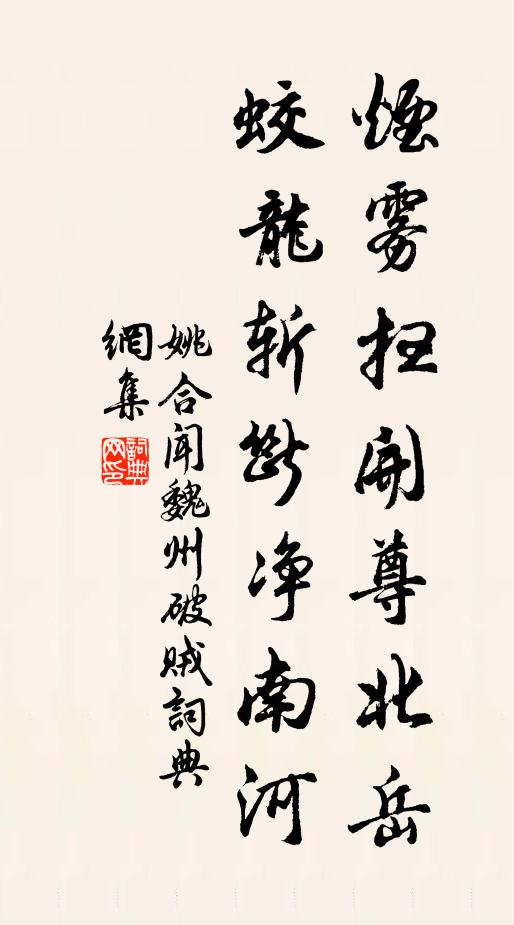 煙雾扫開尊北岳
蛟龍斩斷净南河
姚合闻魏州破贼詞典
網集
詞典网印